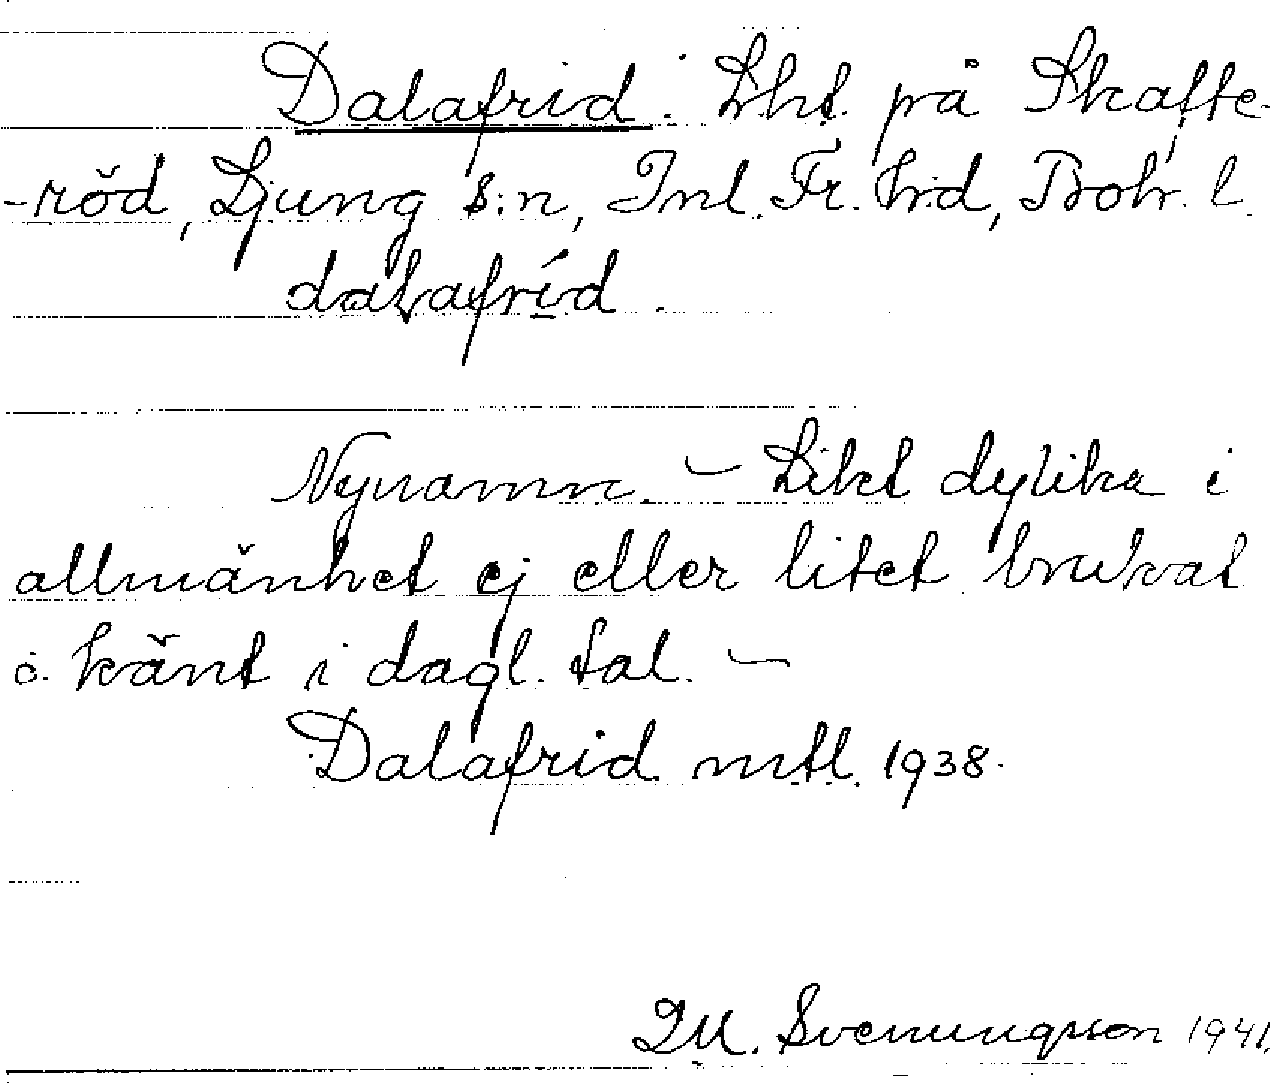 Dalafrid. Lht. på Skafte-
-röd, Ljung s:n, Inl. Fr. hrd, Boh. l.
dalafríd.
Nynamn. – Likt dylika i
allmänhet ej eller litet brukat
o. känt i dagl. tal. –
Dalafrid mtl. 1938.
D.M. Svenungsson 1941.